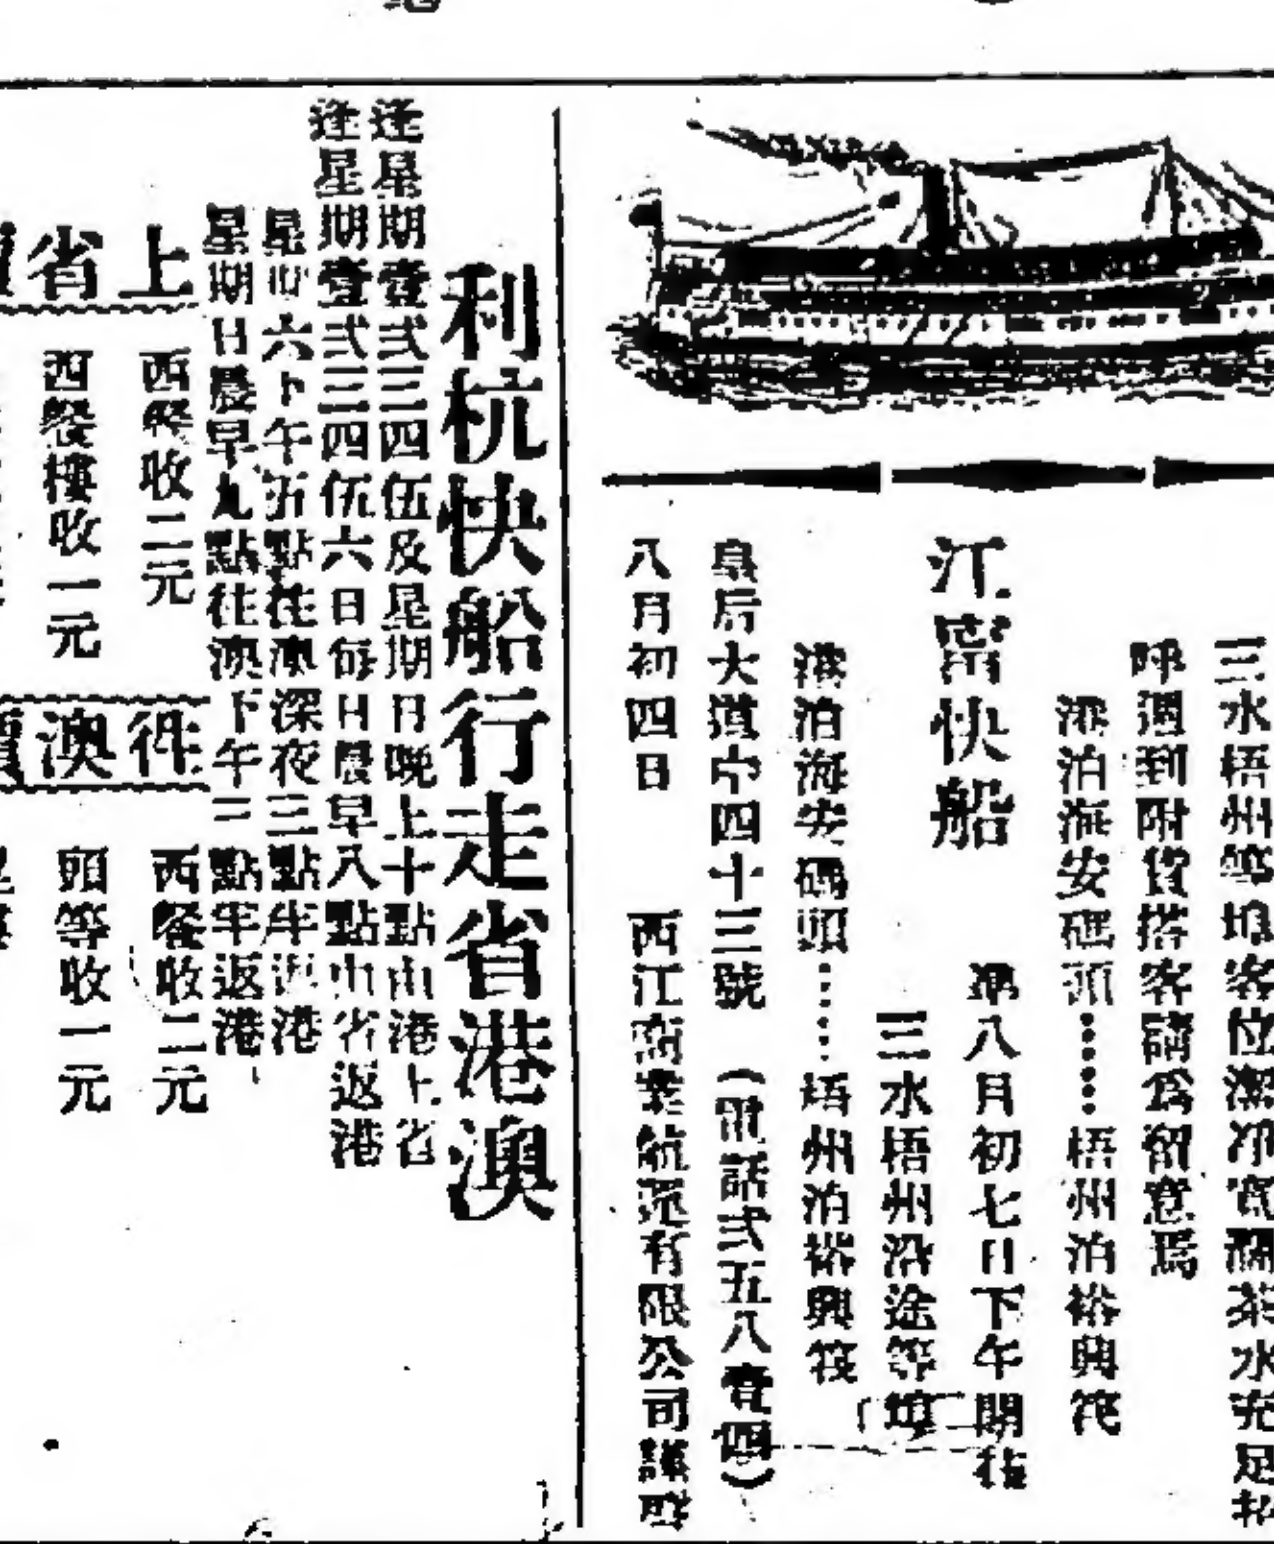 三水梧州等埠客位潔净寬闊茶水充足招
呼週到附貨搭客請為留意焉
港泊海安碼頭……梧州泊裕興筏
江甯快船
準八月初七日下午開往
三水梧州沿途等埠
港泊海安碼頭……梧州泊裕興筏
皇后大道中四十三號 (電話弍五八壹四)
八月初四日 西江商業航運有限公司謹啓
利杭快船行走省港澳
逢星期壹弍三四伍及星期日晚上十點由港上省
逢星期壹弍三四伍六日每日晨早八點由省返港
星期六下午五點往澳深夜三點半返港
星期日晨早九點往澳下午三點半返港
上省
西餐收二元
西餐樓收一元
往澳
西餐收二元
頭等收一元